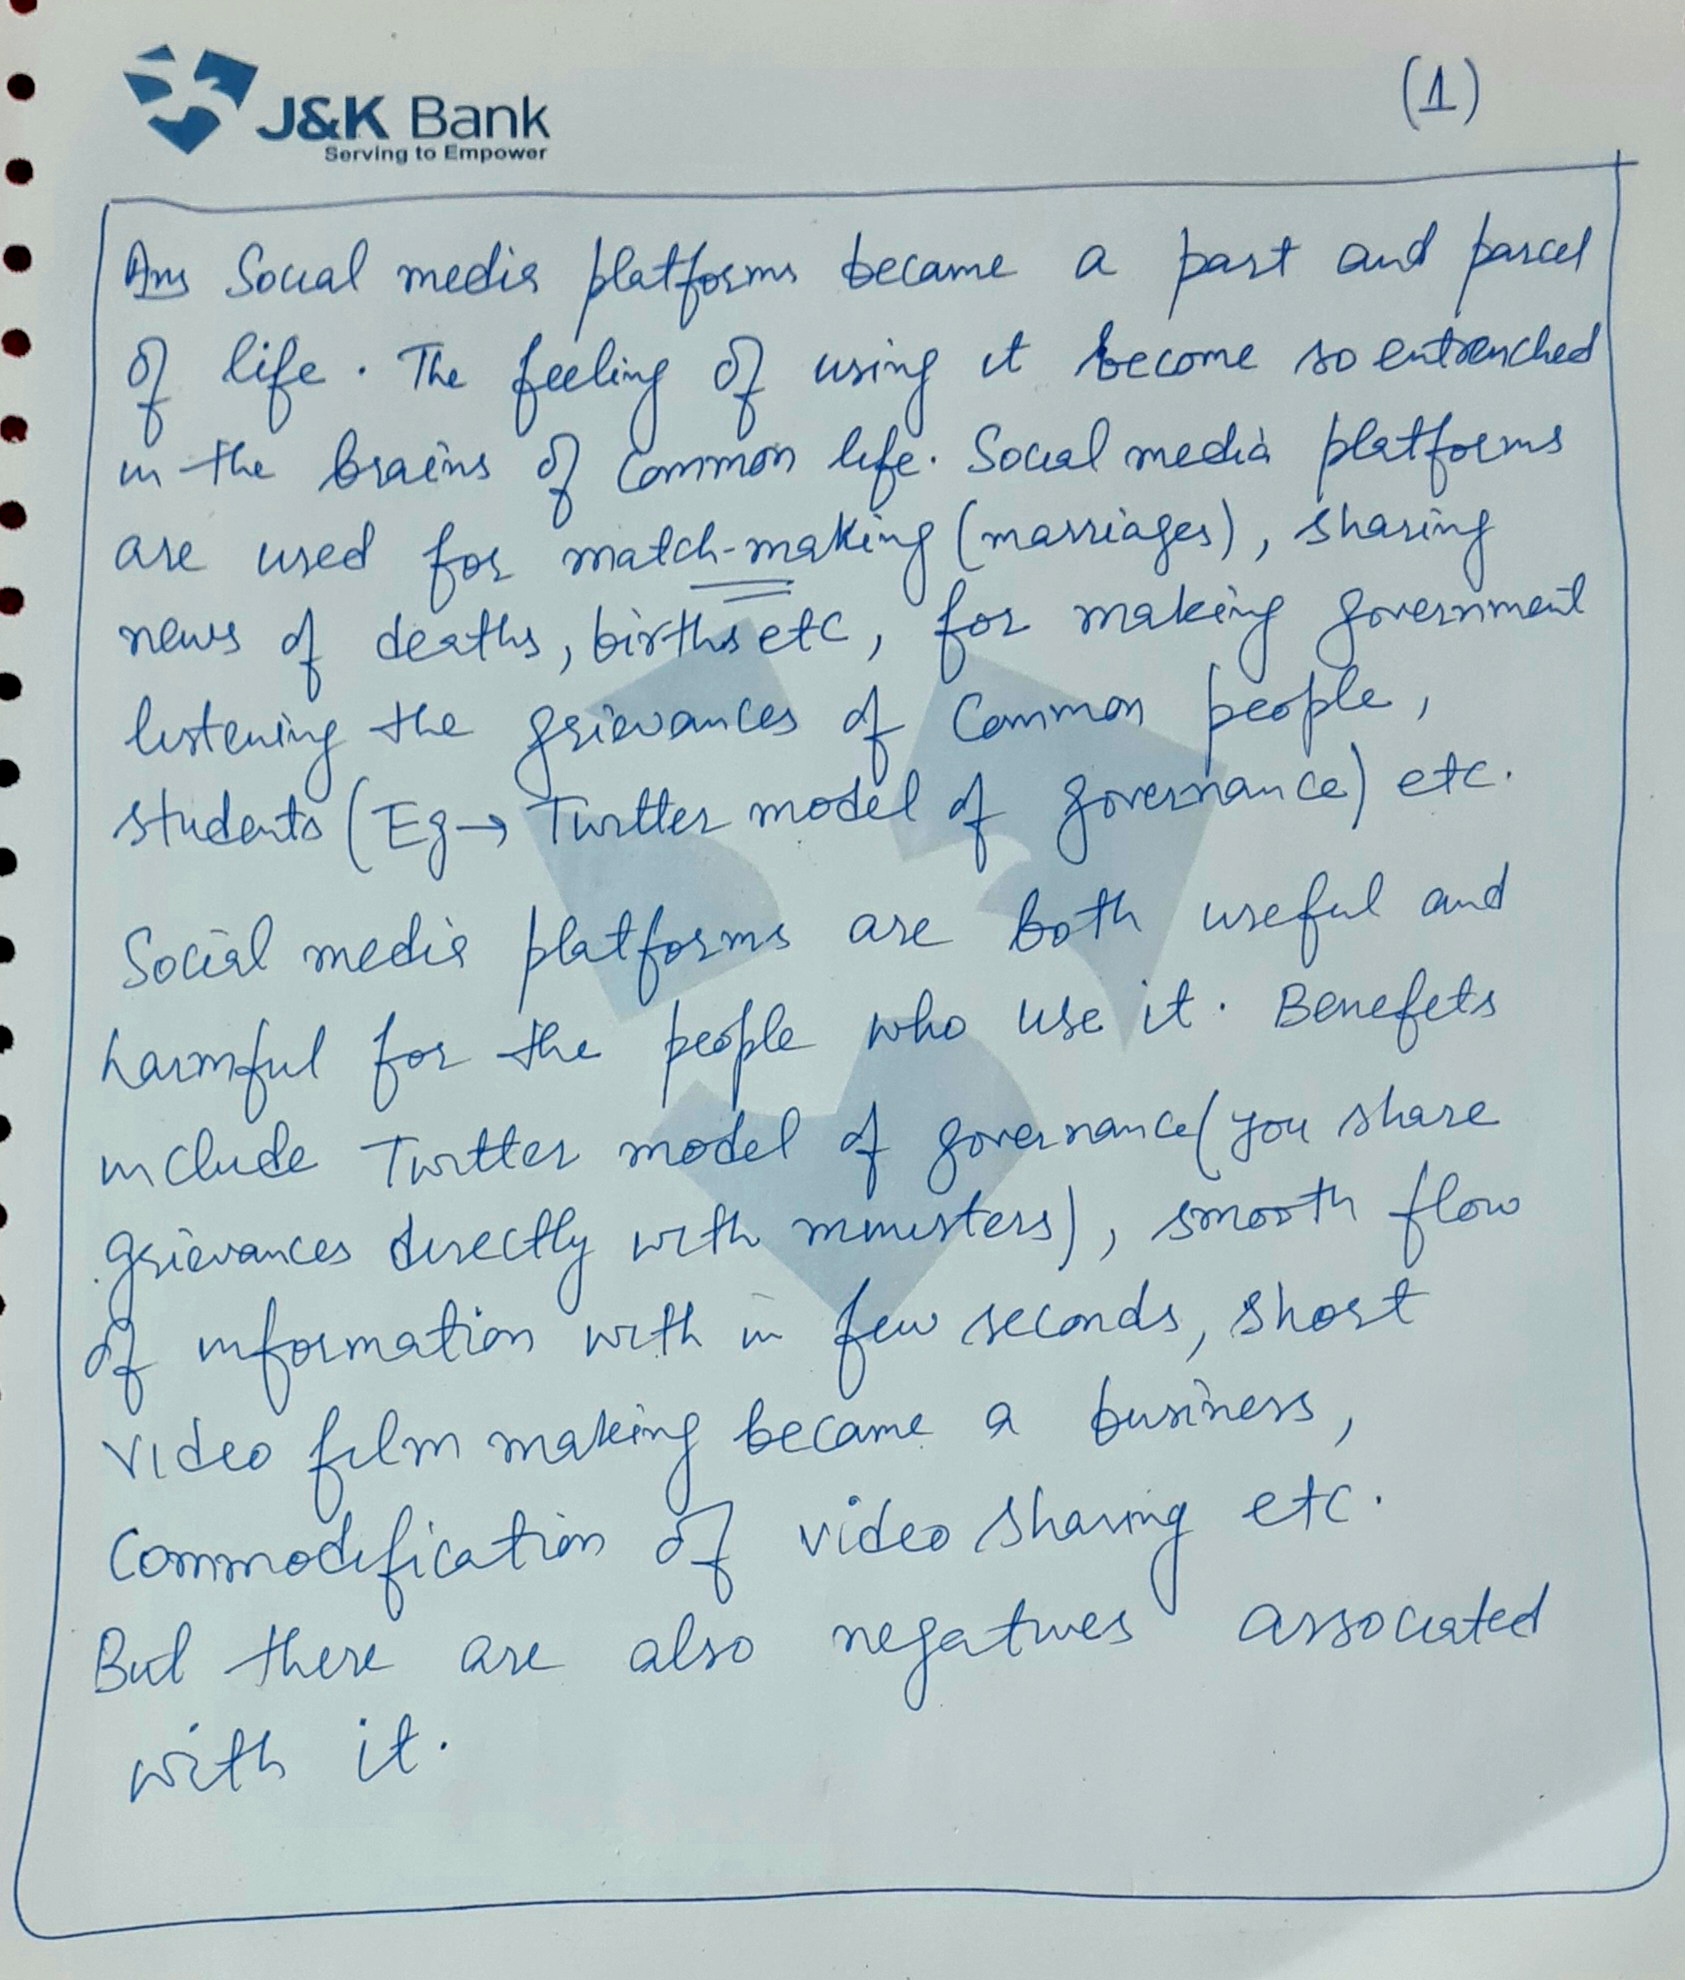 J&K Bank
Serving to Empower
(1)
Ans Social media platforms became a part and parcel
of life. The feeling of using it become so entrenched
in the brains of common life. Social media platforms
are used for match-making (marriages), sharing
news of deaths, births etc, for making government
listening the grievances of Common people,
students (Eg → Twitter model of governance) etc.
Social media platforms are both useful and
harmful for the people who use it. Benefets
include Twitter model of governance (you share
grievances directly with ministers), smooth flow
of information with in few seconds, short
video film making became a business,
Commodification of video sharing etc.
But there are also negatives associated
with it.